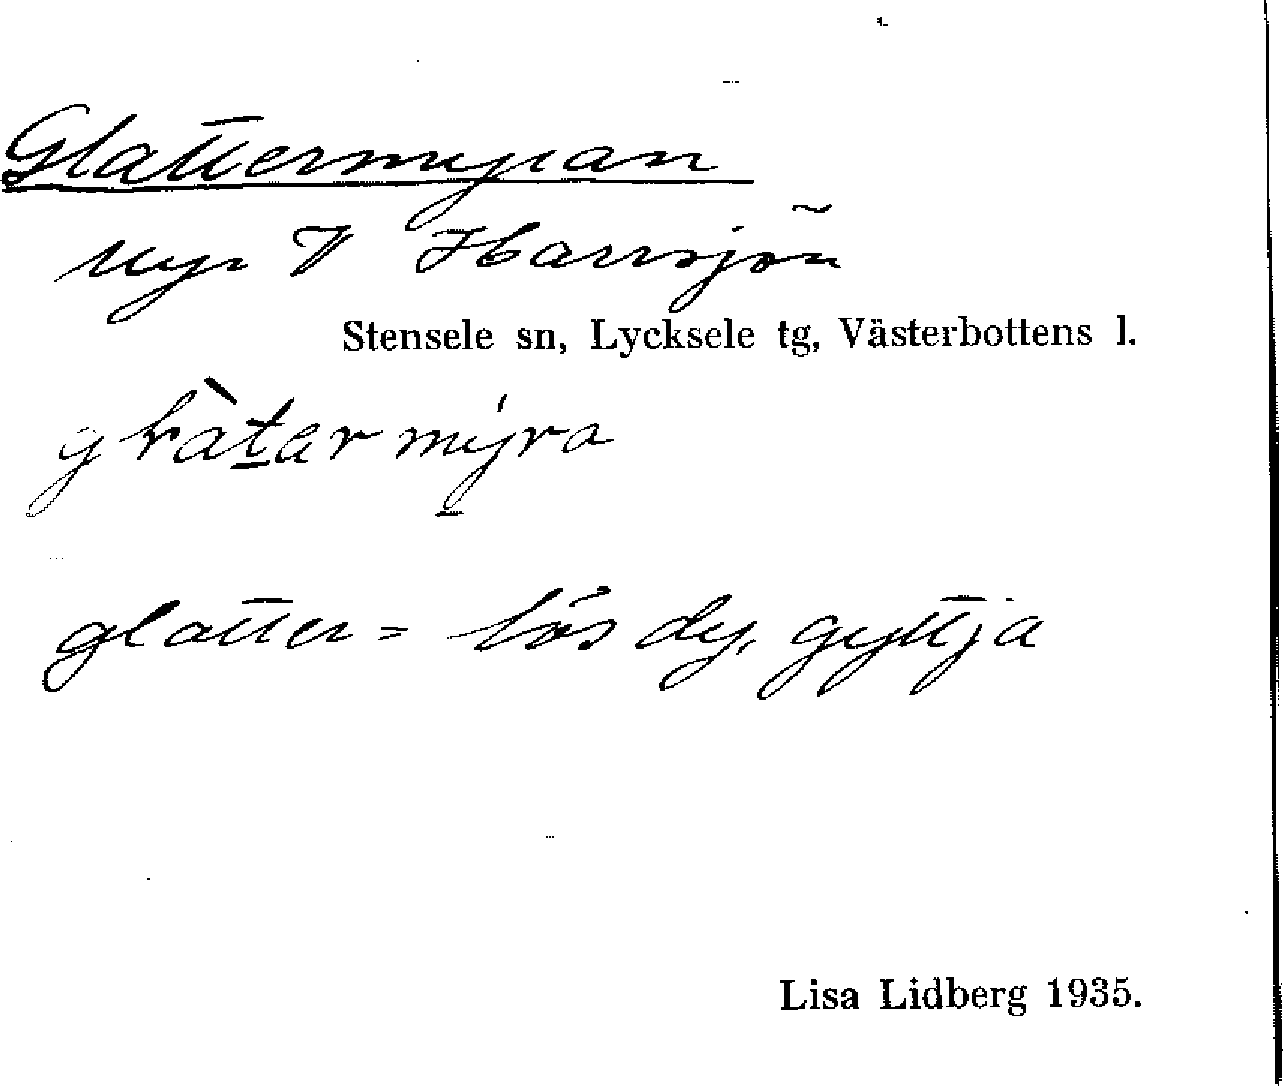 Glattermyran
myr V Harrsjön
Stensele sn, Lycksele tg, Västerbottens l.
glatter = lös dy, gyttja
Lisa Lidberg 1935.